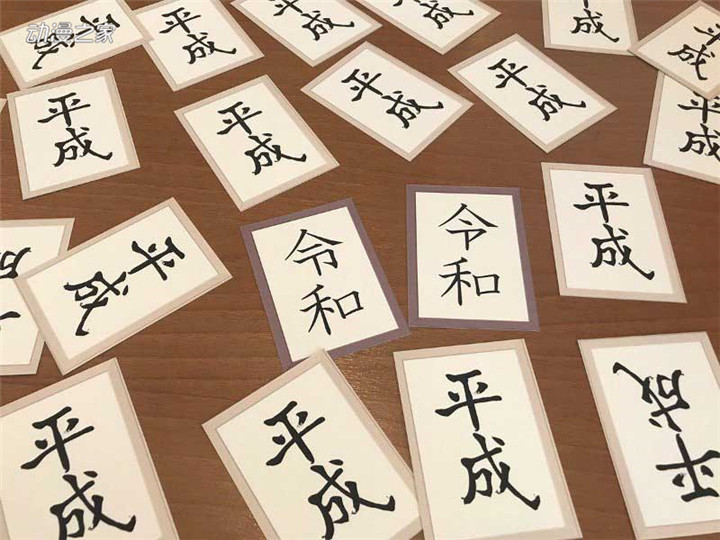 动漫之家
平成
平成
平成
平成
成
平成
平成
平成
平成
平成
平成
平成
令和
令和
平成
平成
平成
平成
平成